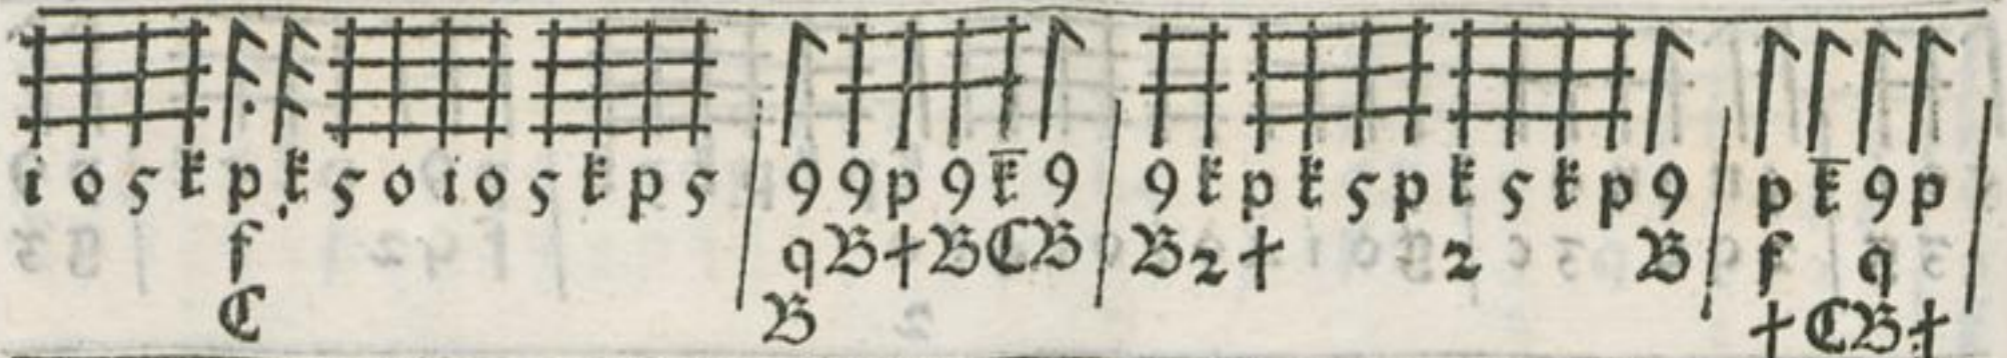 i o 5 k p k 5 o i o 5 k p 5 9 9 p 9 k̄ 9 9 k p k 5 p k 5 k p 9 p k̄ 9 p
f q B † B C B B 2 † 2 B f q
C B † C B †